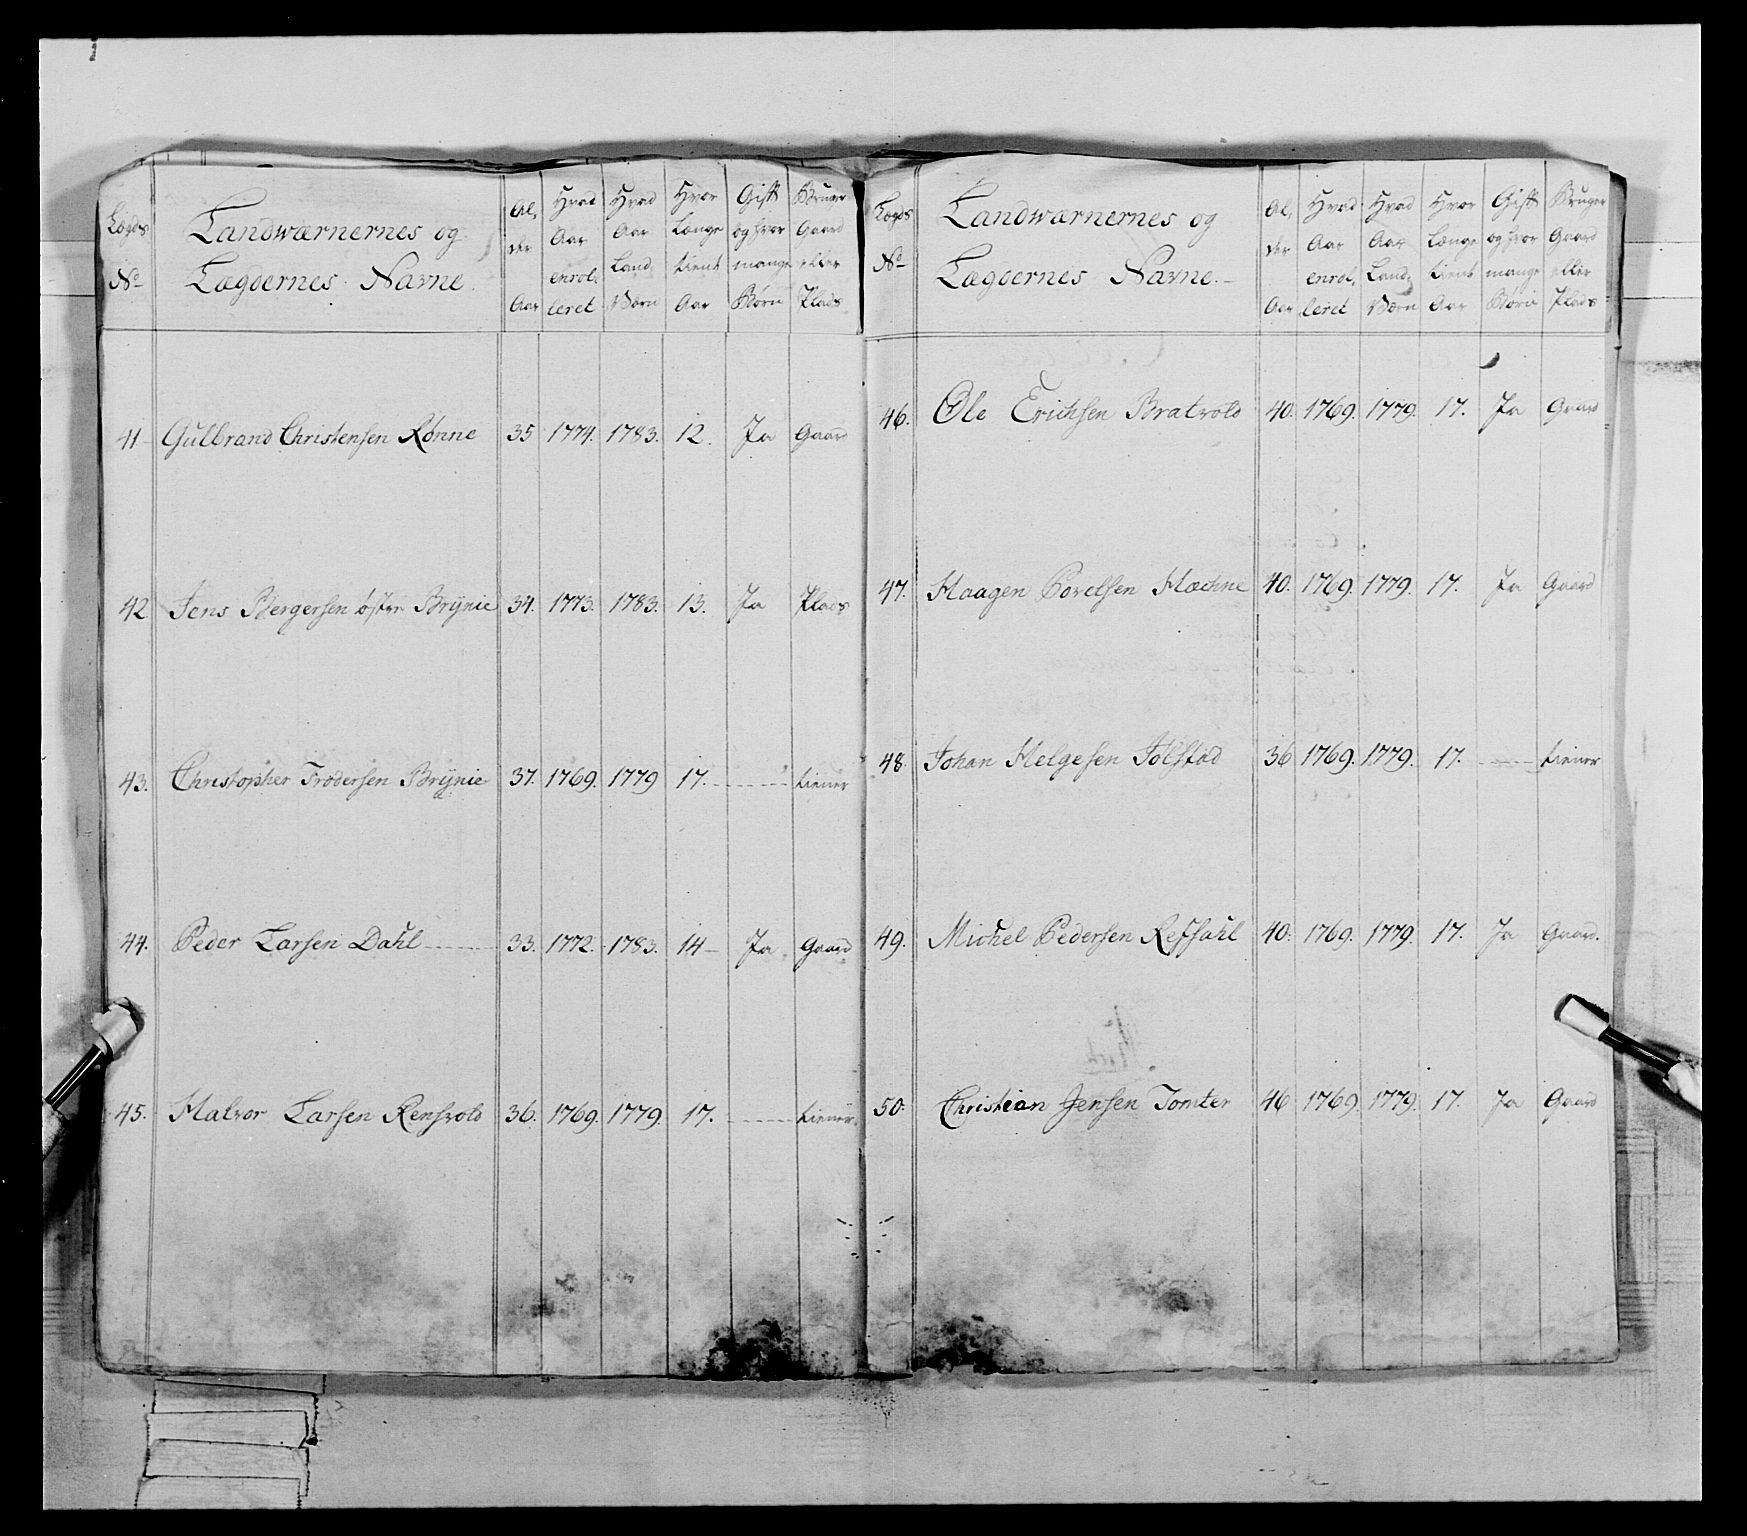 Lægds No
Landwærnernes og
Lægdernes Navne.
Al,der Aar
Hvad Aar enrol,leret
Hvad Aar Land,Værn
Hvor Længe tient Aar
Gift og hvor mange Børn
Bruger Gaard eller Plads
41 Gulbrand Christensen Rønne 35 1774. 1783. 12. Ja Gaard
42 Jens Bergersen østre Brÿnie 34. 1773. 1783. 13. Ja Plads
43. Christopher Trodersen Brÿnie 37. 1769. 1779 17. tiener
44. Peder Larsen Dahl 33. 1772. 1783. 14 Ja Gaard
45. Halvor Larsen Rensvold 36. 1769. 1779. 17. tiener
Lægds No
Landwærnernes og
Lægdernes Navne.
Al,der Aar
Hvad Aar enrol,leret
Hvad Aar Land,Værn
Hvor Længe tient Aar
Gift og hvor mange Børn
Bruger Gaard eller Plads
46. Ole Erichsen Bratvold 40. 1769. 1779. 17. Ja Gaard
47. Haagen Povelsen 40. 1769. 1779. 17. Ja Gaard
48. Johan Helgesen Jølstad 36 1769. 1779. 17. tiener
49. Michel Pedersen Refsahl 40. 1769. 1779. 17. Ja Gaard.
50. Christian Jensen Tomter 46 1769. 1779. 17. Ja Gaard